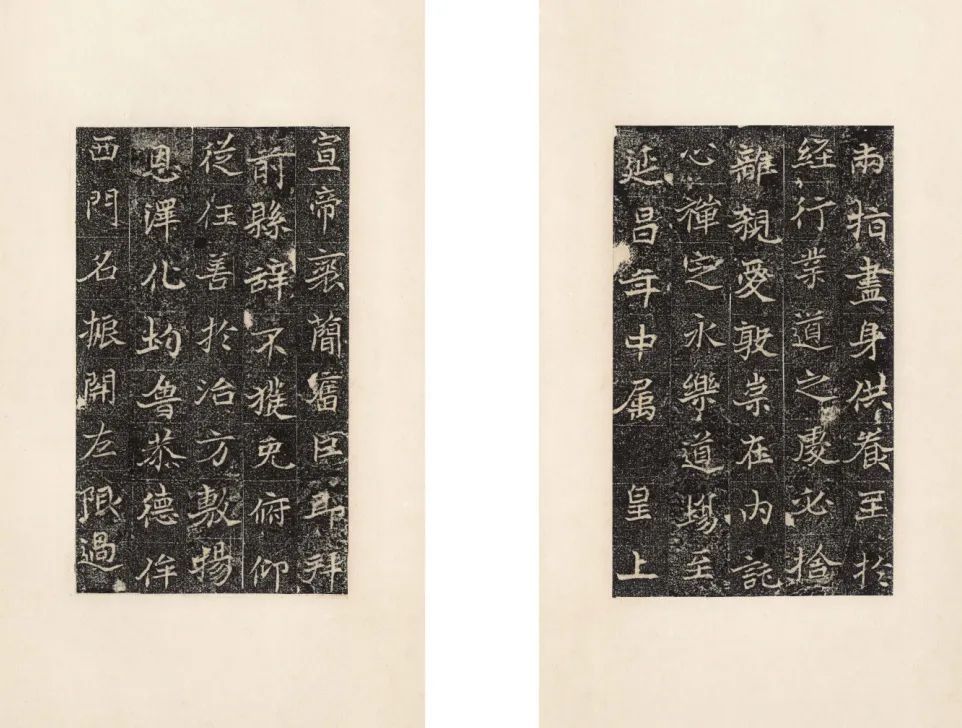 兩指盡身供養至於
經行業道之處必捨
離親愛敦崇在內託
心禪定永樂道場至
延昌年中属皇上
宣帝褒簡舊臣即拜
前縣辞不獲免俯仰
從任善於治方敷暢
恩澤化均魯恭德侔
西門名振開左限過